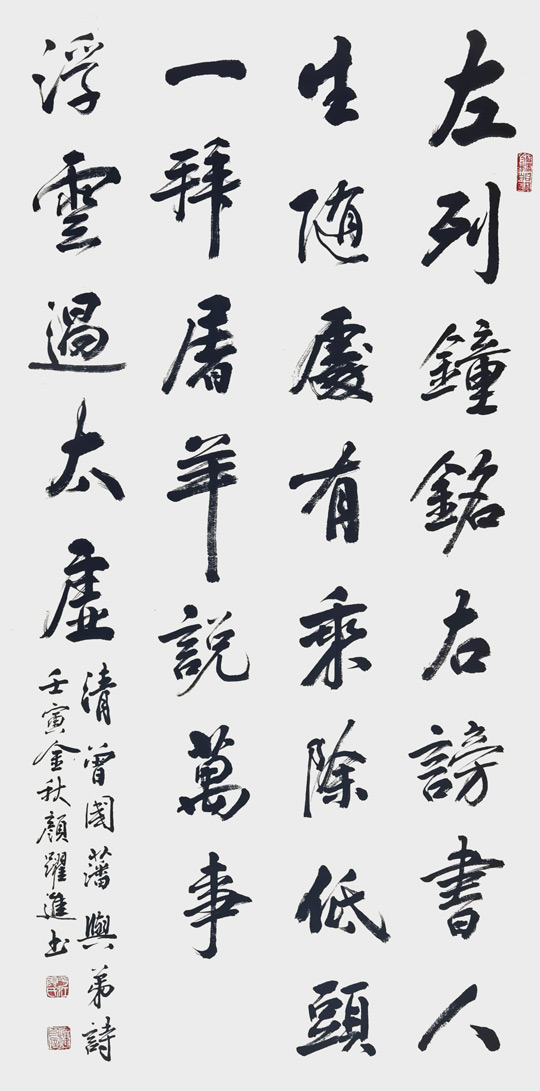 左列鐘銘右謗書人
生随處有乘除低頭
一拜屠羊説萬事
浮雲過太虛
清曾國藩與弟詩
壬寅金秋顏躍進书